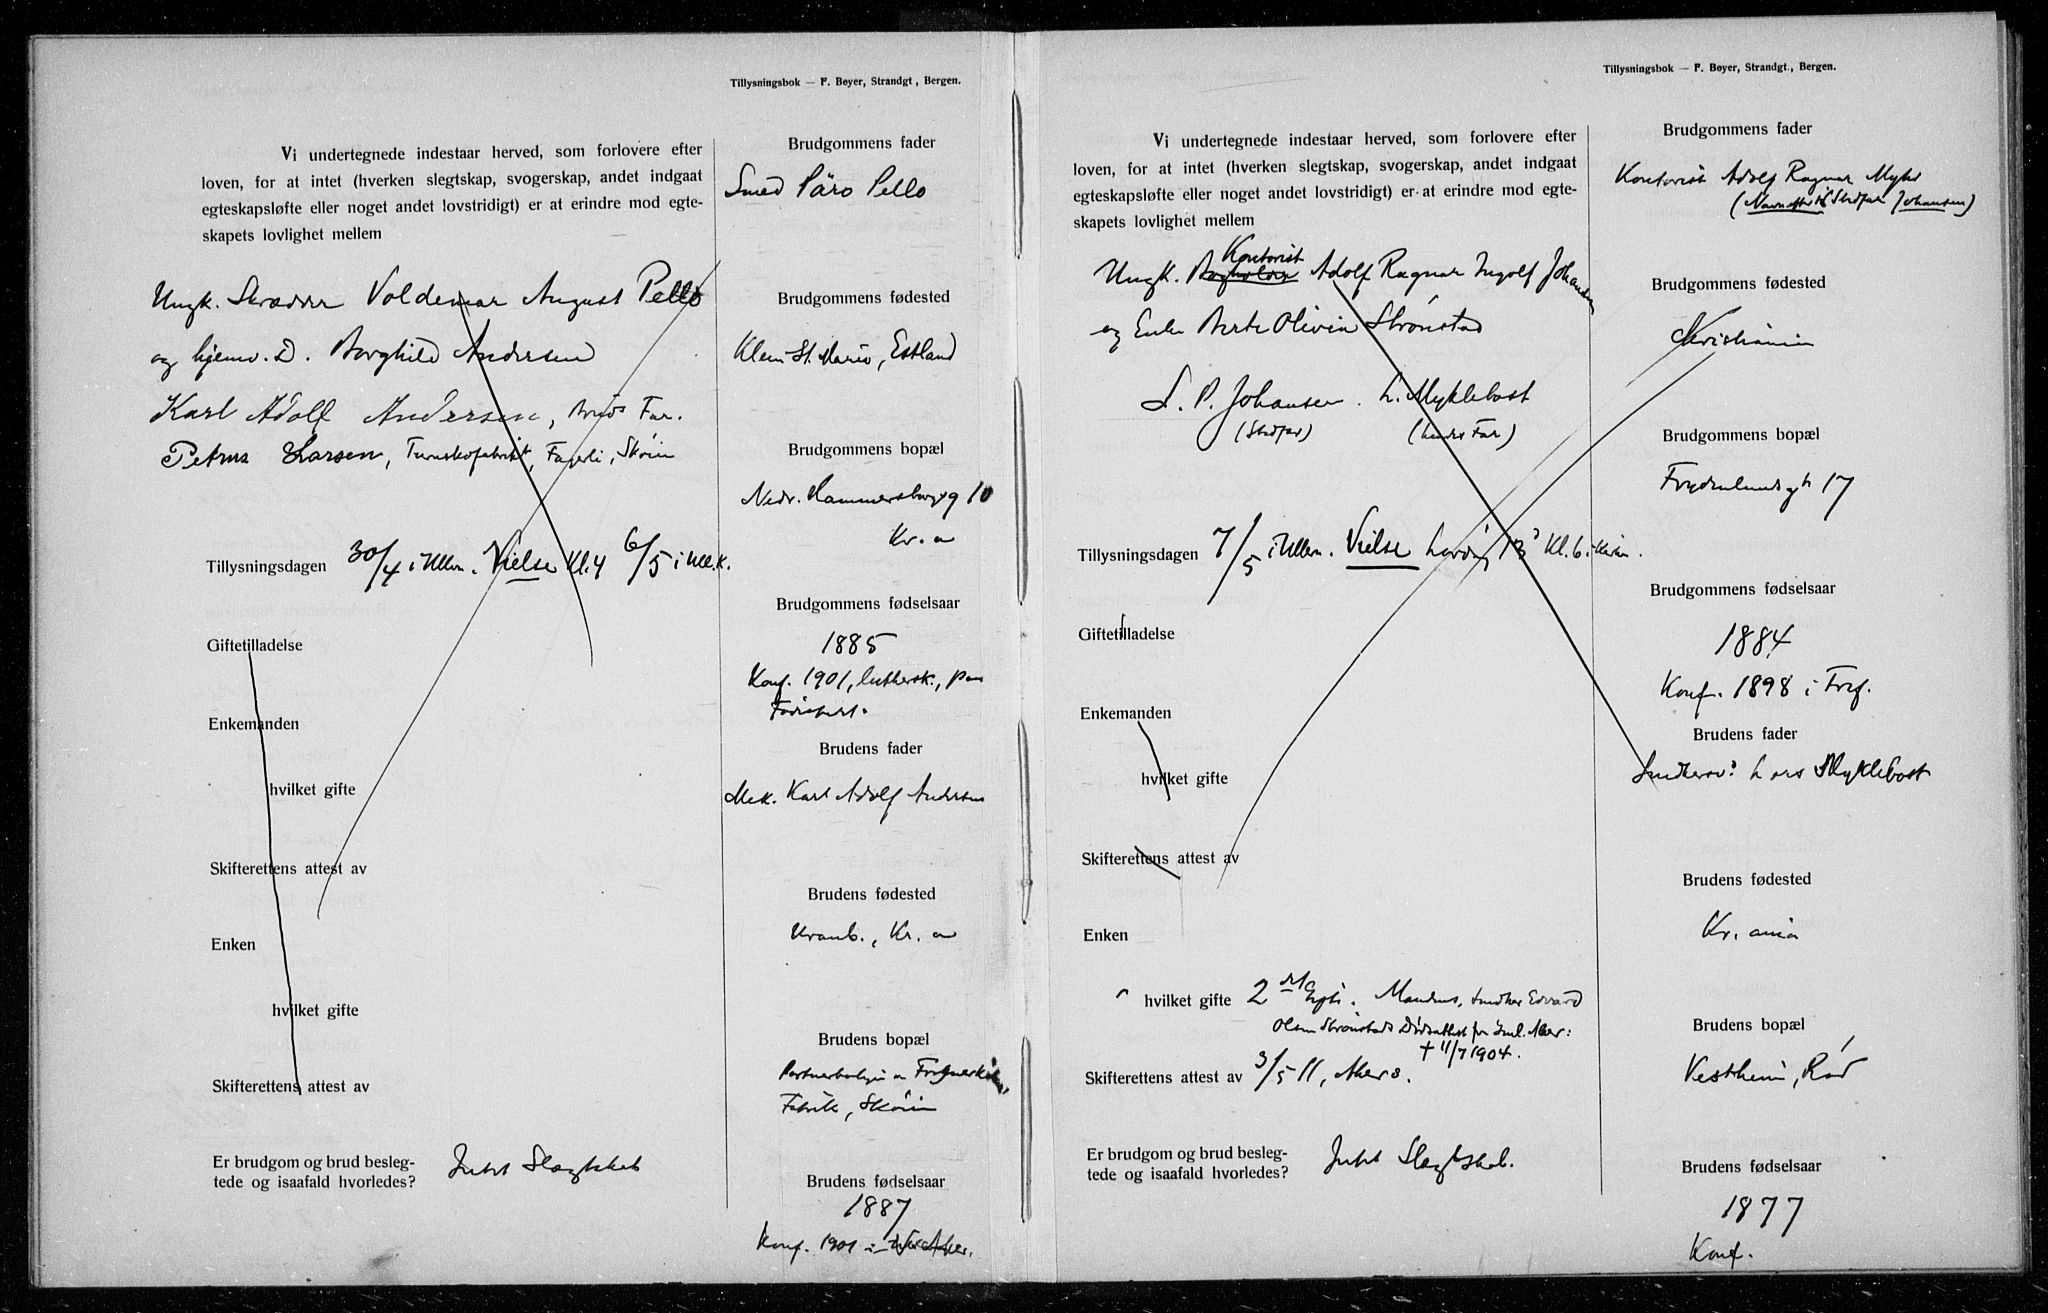 Tillysningsbok — F. Beyer, Strandgt., Bergen.
Vi undertegnede indestaar herved, som forlovere efter
loven, for at intet (hverken slegtskap, svogerskap, andet indgaat
egteskapsløfte eller noget andet lovstridigt) er at erindre mod egte-
skapets lovlighet mellem
Ungk. Skrædder Voldemar August Pello
og hjemv. D. Borghild Andersen
Karl Adolf Andersen, Bruds Far.
Petrus Larsen, Fagerli, Skøien
Tillysningsdagen 30/4 i Ullern. Vielse Kl. 4 6/5 i Ull. k.
Giftetilladelse
Enkemanden
hvilket gifte
Skifterettens attest av
Enken
hvilket gifte
Skifterettens attest av
Er brudgom og brud besleg-
tede og isaafald hvorledes? Intet Slægtskab
Brudgommens fader
Smed Päro Pello
Brudgommens fødested
Klein St. Marie, Estland
Brudgommens bopæl
Nedr. Hammersborgg 10
Kr. a
Brudgommens fødselsaar
1885
Konf. 1901, luthersk.,
Brudens fader
Mek. Karl Adolf Andersen
Brudens fødested
Uranb., Kr. a
Brudens bopæl
Fabrik, Skøien
Brudens fødselsaar
1887
Konf. 1901 i V. Aker.
Tillysningsbok — F. Beyer, Strandgt., Bergen.
Vi undertegnede indestaar herved, som forlovere efter
loven, for at intet (hverken slegtskap, svogerskap, andet indgaat
egteskapsløfte eller noget andet lovstridigt) er at erindre mod egte-
skapets lovlighet mellem
Kontorist
Ungk. Adolf Ragnar Ingolf Johansen
og Enke Berte Olivia Strønstad
L. P. Johansen. L. Myklebost
(Stedfar) (hendes Far)
Tillysningsdagen 7/5 i Ullern. Vielse Lørdag 13 Kl. 6 i Kirken.
Giftetilladelse
Enkemanden
hvilket gifte
Skifterettens attest av
Enken
hvilket gifte 2 det Gifte. Mandens, Snedker Edvard
Olsen Strønstads Dødsattest fra Aker:
† 11/7 1904.
Skifterettens attest av 3/5 11, Akers.
Er brudgom og brud besleg-
tede og isaafald hvorledes? Intet Slægtskab.
Brudgommens fader
Kontorist Adolf Ragnar Myhr
(Navn efter Stedfar Johansen)
Brudgommens fødested
Kristiania
Brudgommens bopæl
Frydenlundsgt 17
Brudgommens fødselsaar
1884
Konf. 1898 i Tref.
Brudens fader
Snedkersv. Lars Myklebost
Brudens fødested
Kr. ania
Brudens bopæl
Vestheim, Rød
Brudens fødselsaar
1877
Konf.